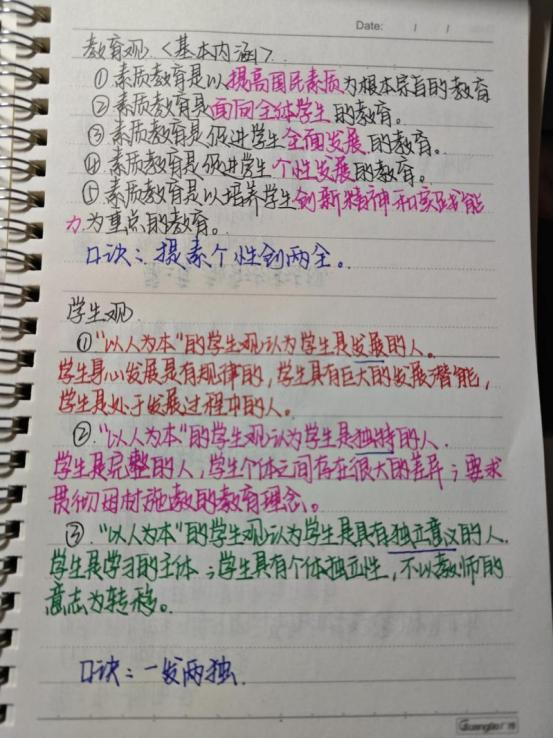 Date: / /
教育观.<基本内涵>.
①素质教育是以提高国民素质为根本宗旨的教育
②素质教育是面向全体学生的教育。
③素质教育是促进学生全面发展的教育。
④素质教育是促进学生个性发展的教育。
⑤素质教育是以培养学生创新精神和实践能
力为重点的教育。
口诀:提素个性创两全。
学生观
①"以人为本"的学生观认为学生是发展的人。
学生身心发展是有规律的,学生具有巨大的发展潜能,
学生是处于发展过程中的人。
②."以人为本"的学生观认为学生是独特的人.
学生是完整的人,学生个体之间存在很大的差异;要求
贯彻因材施教的教育理念。
③."以人为本"的学生观认为学生是具有独立意义的人.
学生是学习的主体;学生具有个体独立性,不以教师的
意志为转移。
口诀:一发两独.
Guangbo广博